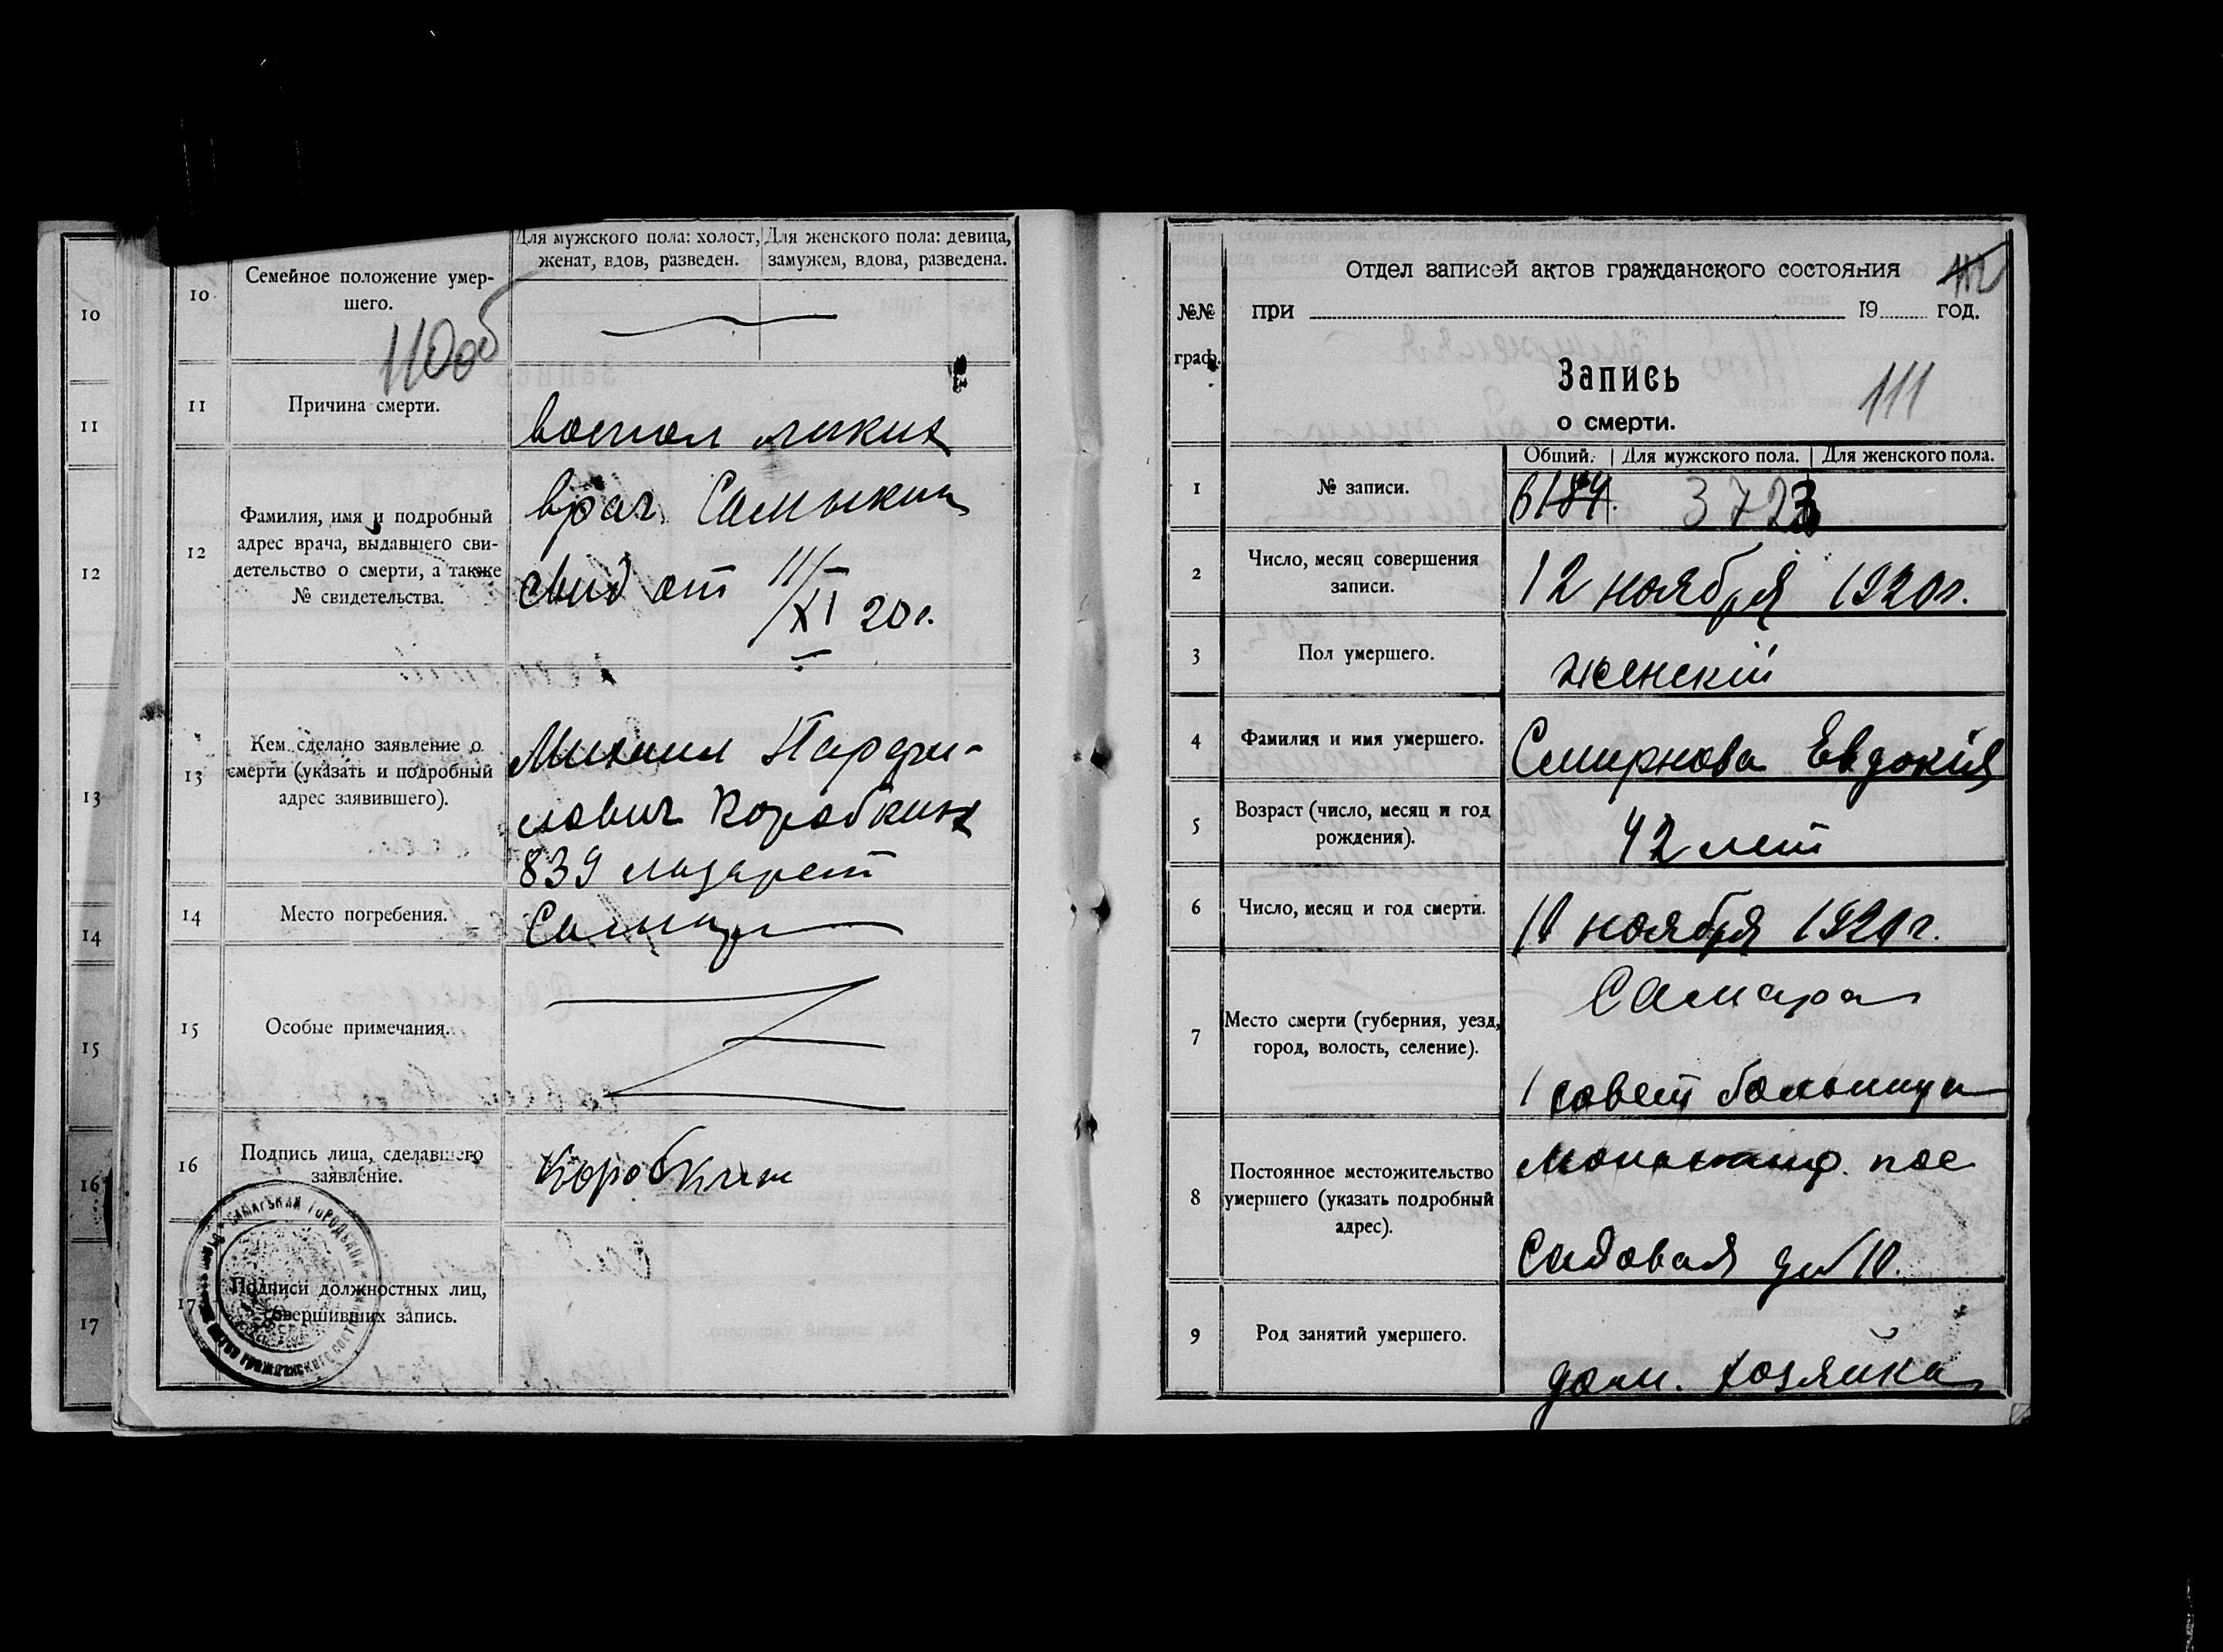 10
11
12
13
14
15
16
17
10
Семейное положение умер-
шего.
Для мужского пола: холост,
женат, вдов, разведен.
Для женского пола: девица,
замужем, вдова, разведена.
11
Причина смерти.
воспол легких
12
Фамилия, имя и подробный
адрес врача, выдавшего сви-
детельство о смерти, а также
№ свидетельства.
врач Самыкин
свид от 11/XI 20 г.
13
Кем сделано заявление о
смерти (указать и подробный
адрес заявившего).
Михаил
Коробкин
839 лазарет
14
Место погребения.
Самара
15
Особые примечания.
16
Подпись лица, сделавшего
заявление.
Коробкин
17
Подписи должностных лиц,
совершивших запись.
№№
граф.
Отдел записей актов гражданского состояния
при 19 год.
Запись
о смерти.
111
Общий. Для мужского пола. Для женского пола.
1
№ записи.
6184. 3723
2
Число, месяц совершения
записи.
12 ноября 1920 г.
3
Пол умершего.
женскій
4
Фамилия и имя умершего.
Смирнова Евдокія
5
Возраст (число, месяц и год
рождения).
42 лет
6
Число, месяц и год смерти.
ноября 1920 г.
7
Место смерти (губерния, уезд,
город, волость, селение).
Самара
1 совет больница
8
Постоянное местожительство
умершего (указать подробный
адрес).
Монастыр. пос
Садовая д № 10.
9
Род занятий умершего.
дом. хозяйка